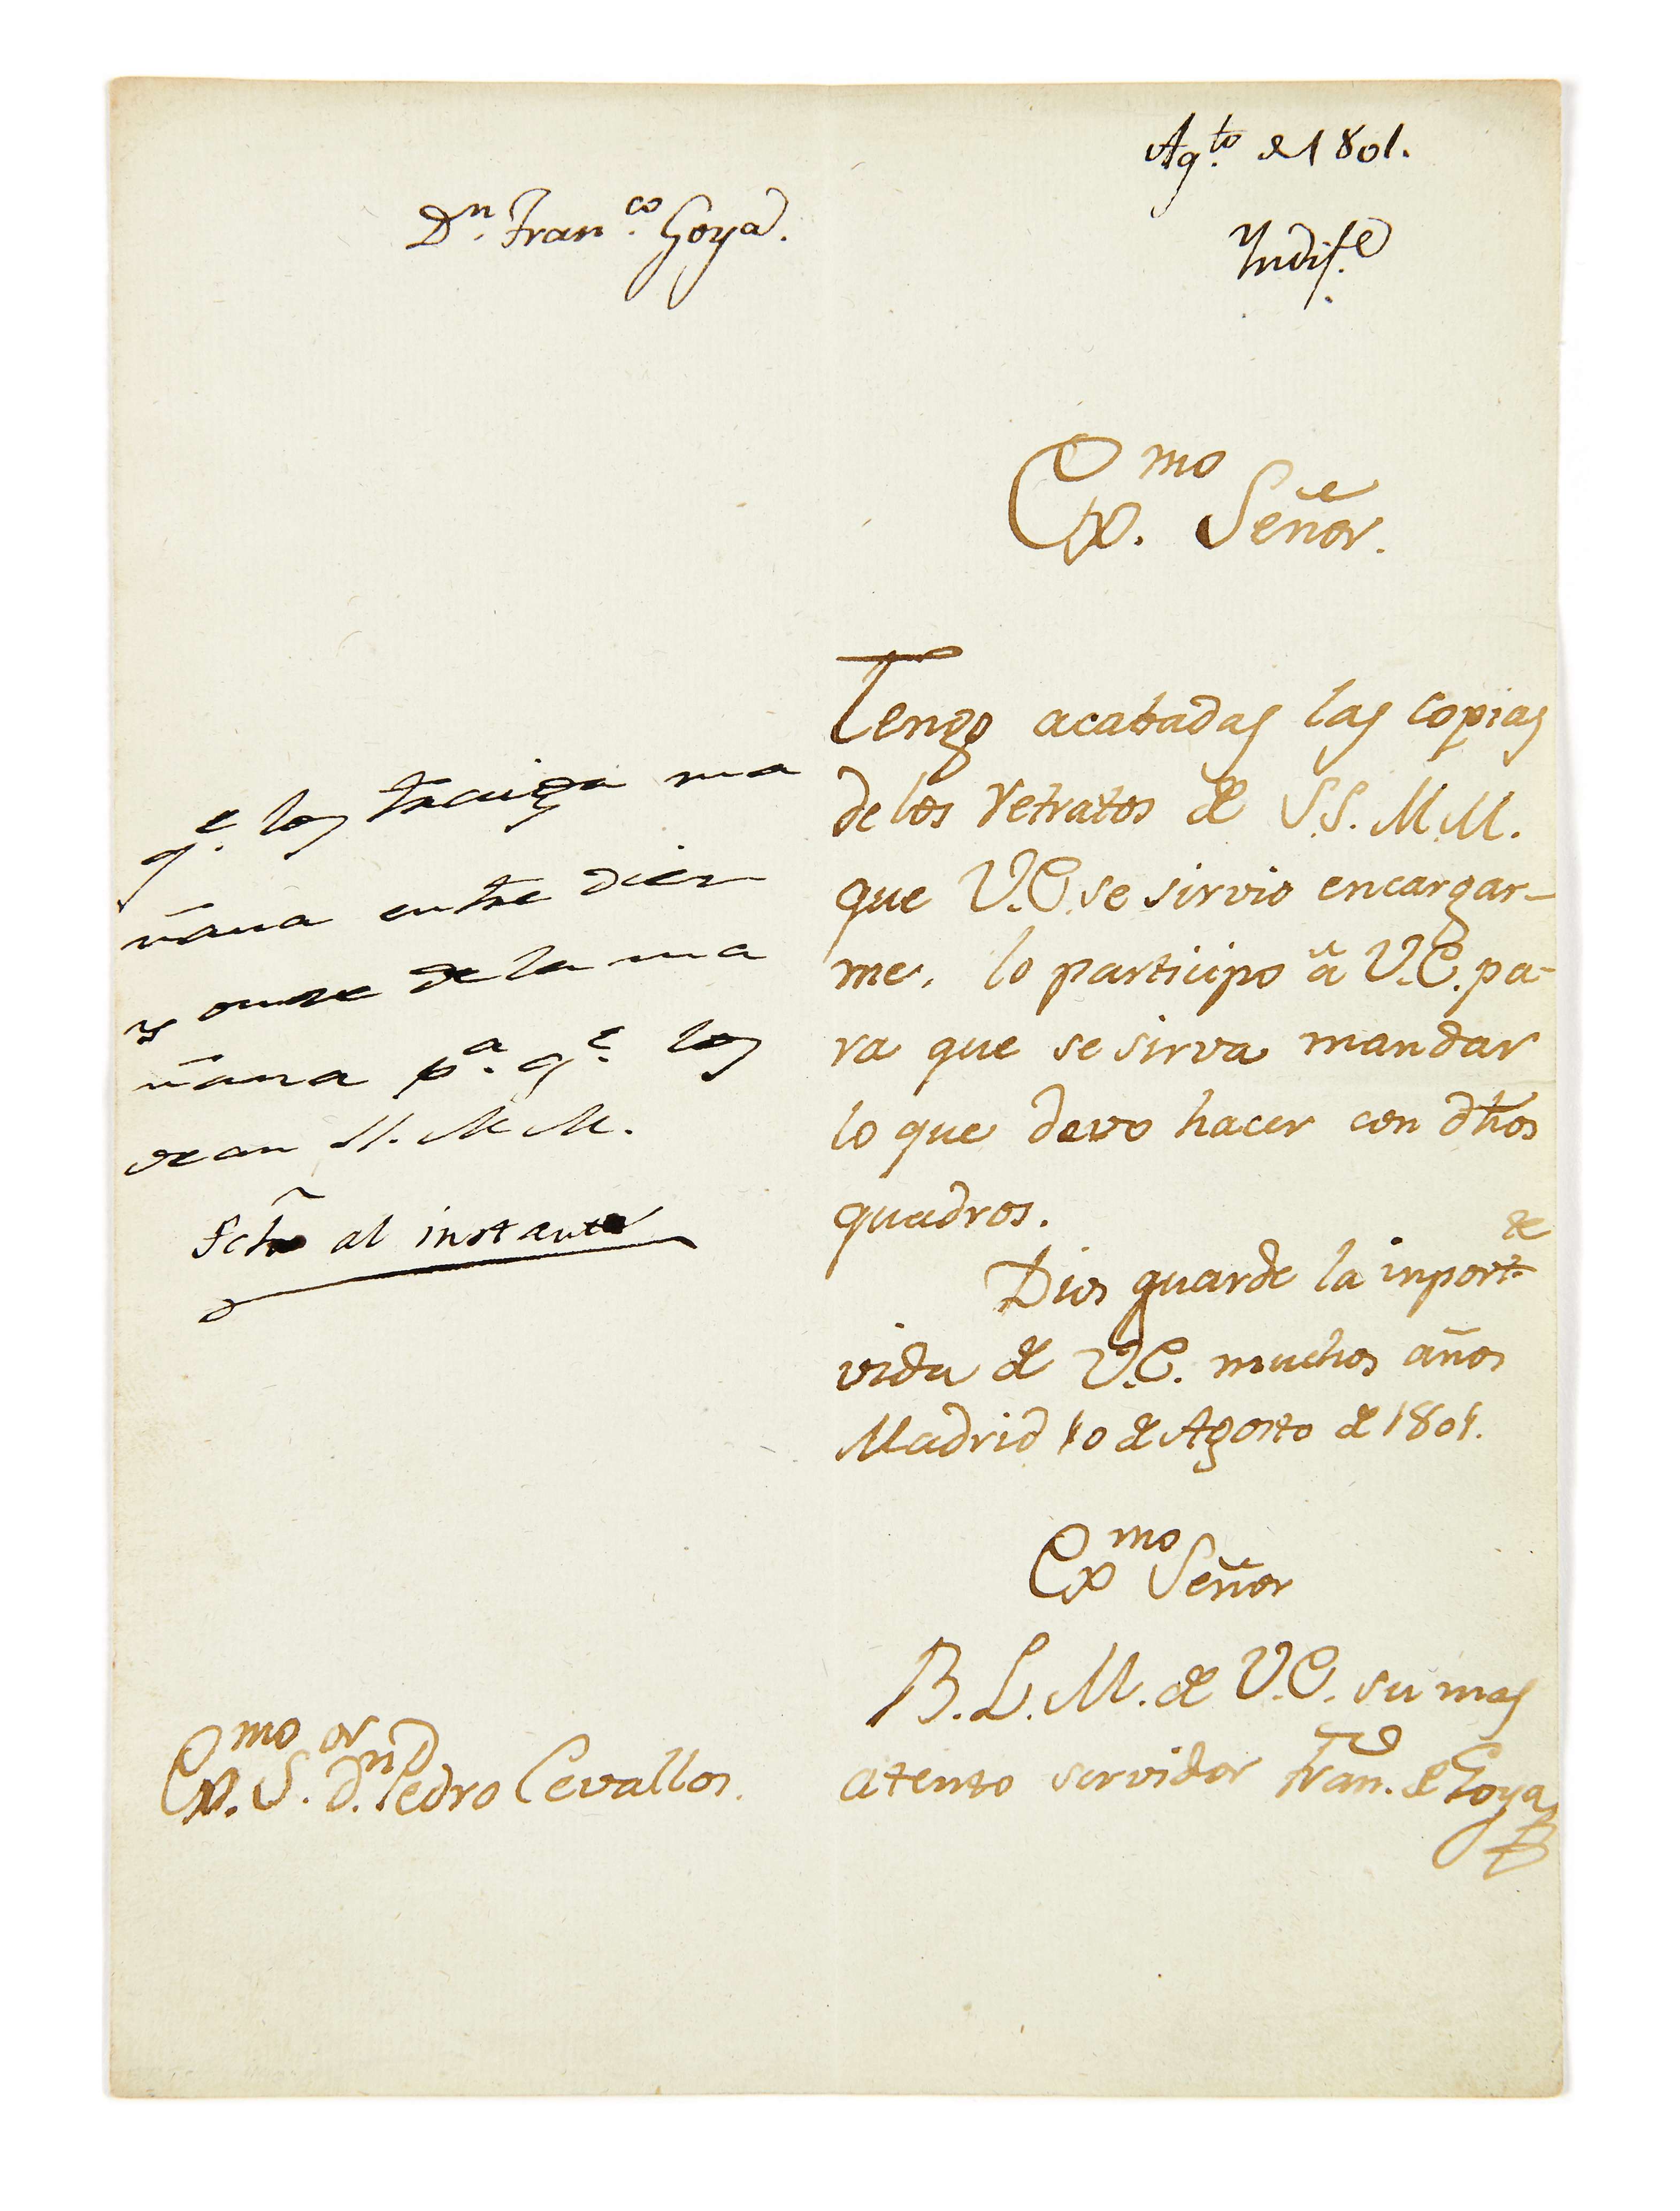 Agto. de 1801.
Dn. Franco. Goya.
Indife.
Exmo. Señor.
Tengo acabadas las copias
de los retratos de S.S. M.M.
que V.E. se sirvio encargar-
me, lo participo â V.E. pa-
ra que se sirva mandar
lo que devo hacer con dhos
quadros.
Dios guarde la inportte.
vida de V.E. muchos años
Madrid 10 de Agosto de 1801.
Exmo Señor
B. L. M. de V.E. su mas
atento servidor Franco. de Goya
qe. los traiga ma
ñana entre diez
y onze de la ma
ñana pa. qe. los
vean SS. MM.
Fcho al instante
Exmo. Sor. Dn. Pedro Cevallos.